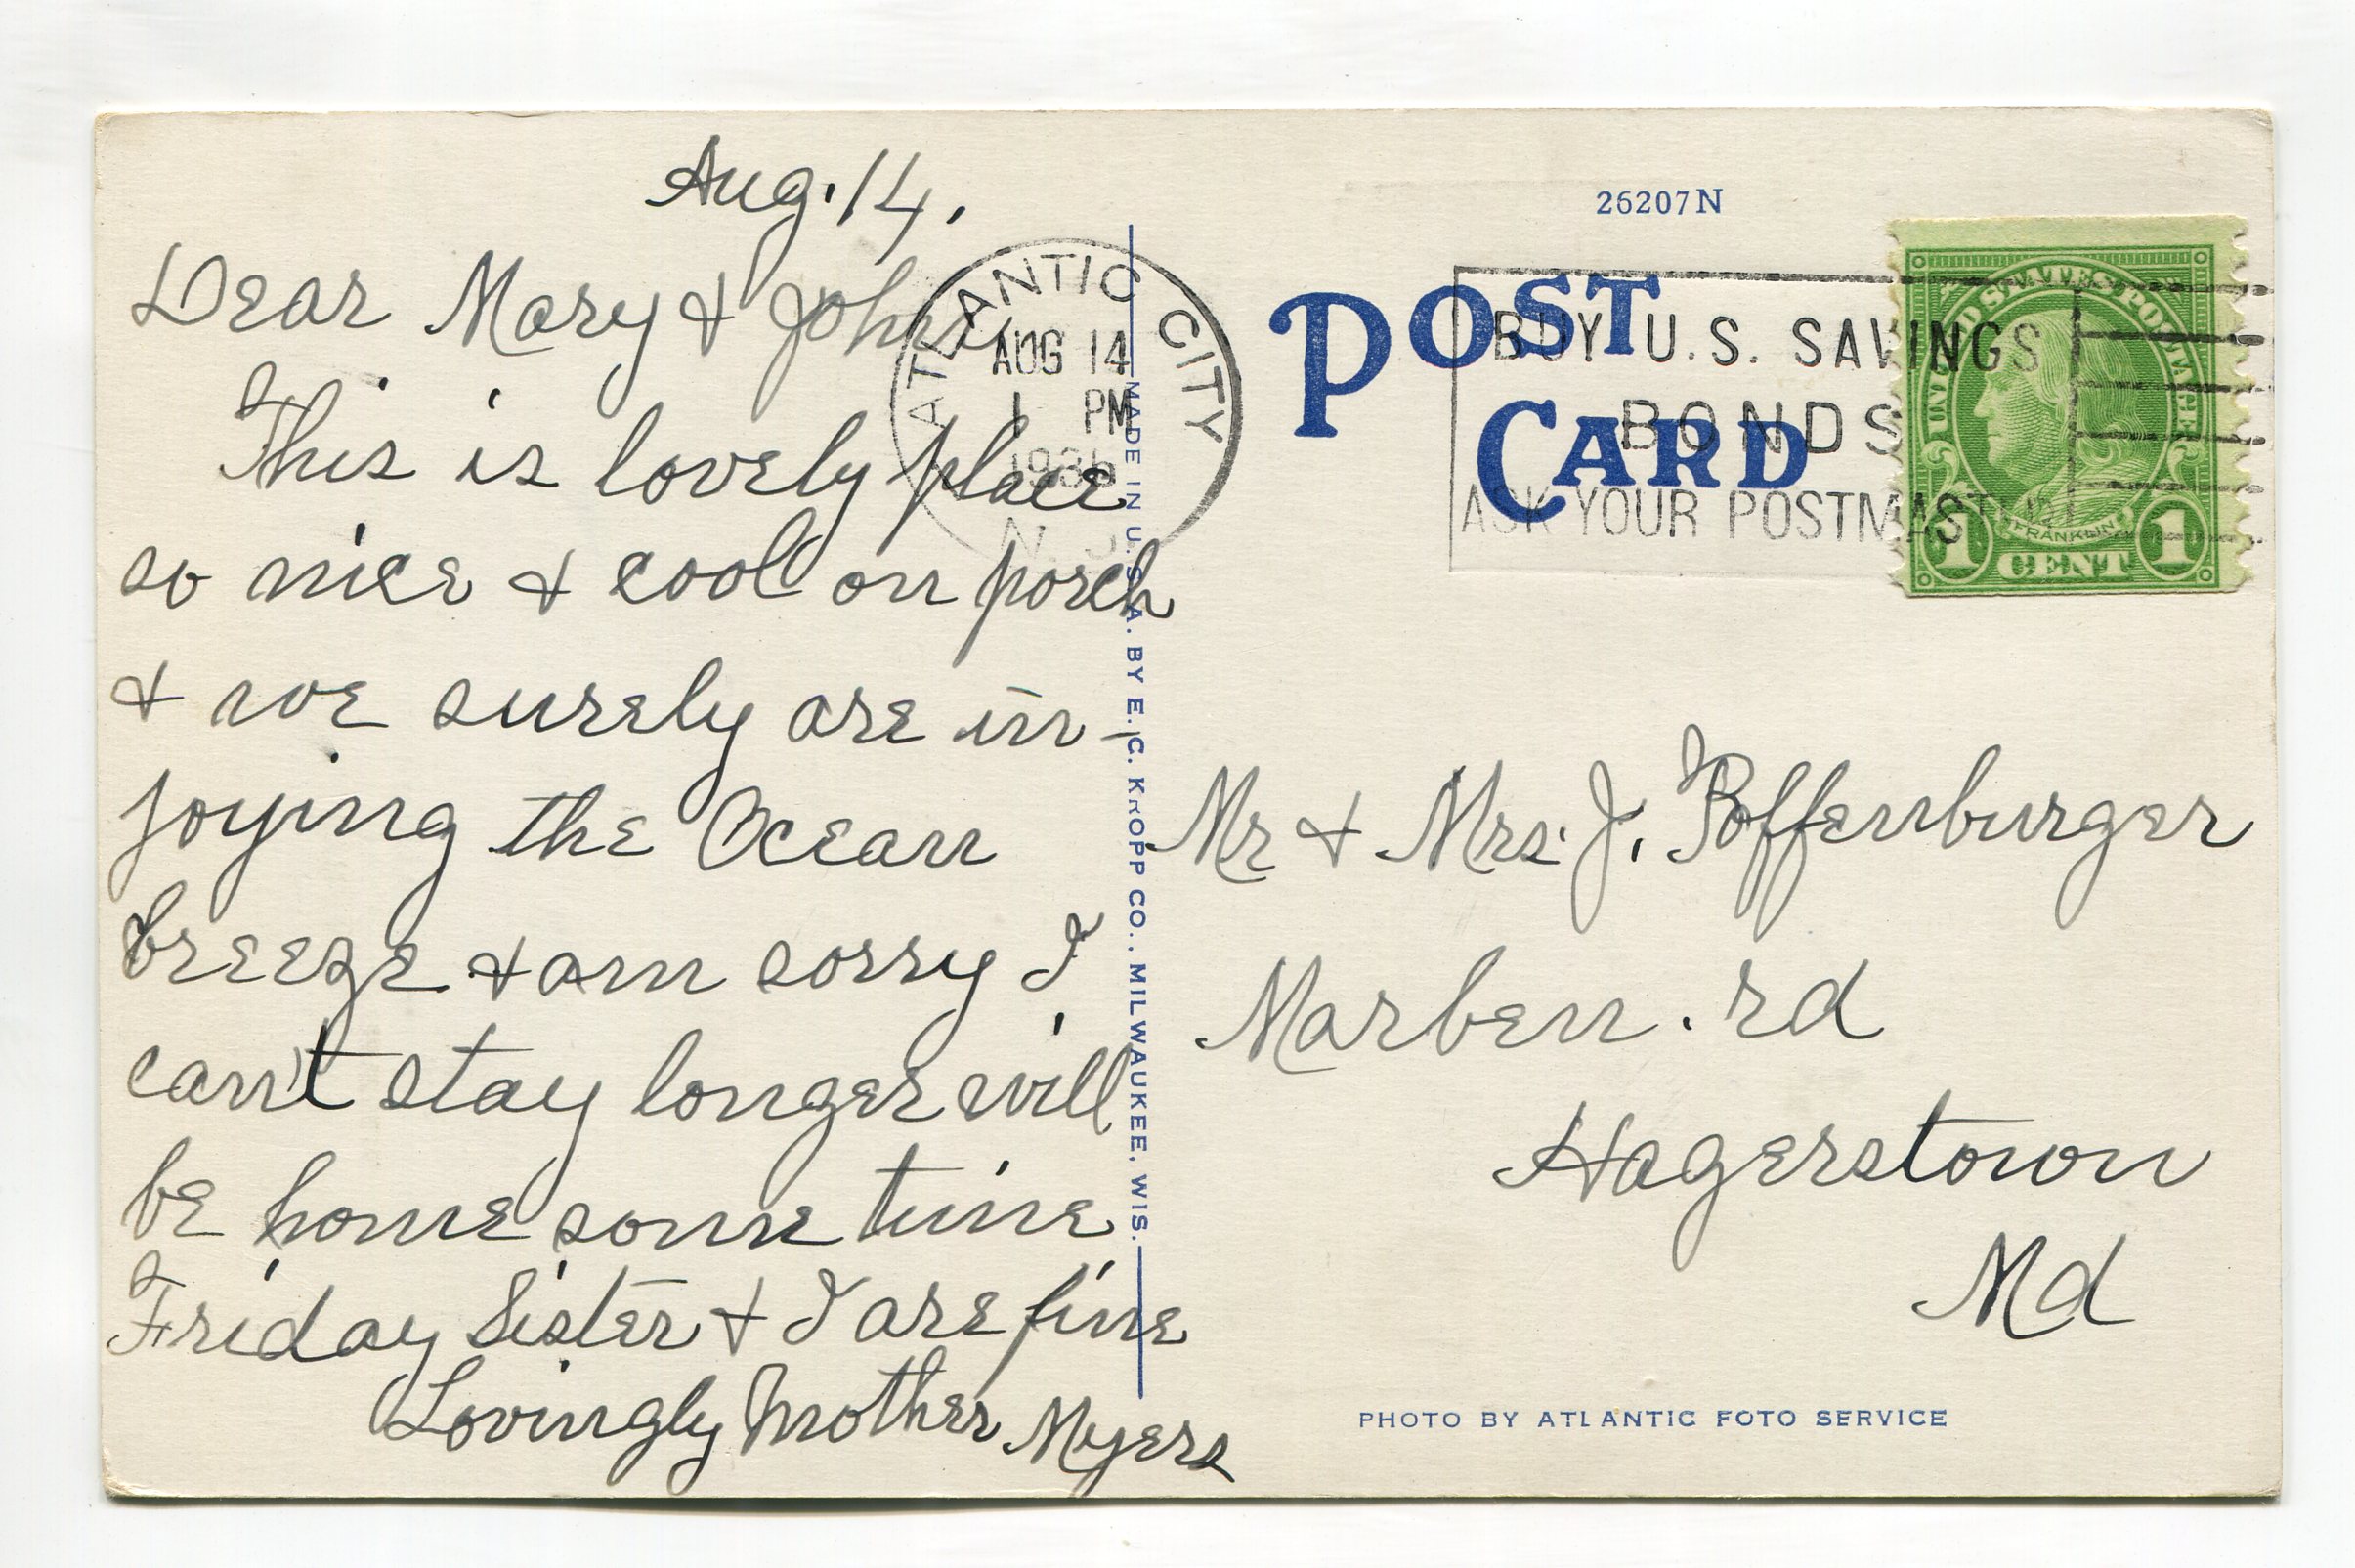 Aug. 14,
Dear Mary & John
This is lovely place
so nice & cool on porch
& we surely are in-
joying the Ocean
breeze & am sorry I
can't stay longer will
be home some time
Friday Sister & I are fine
Lovingly Mother Myers
ATLANTIC CITY
AUG 14
1 PM
N. J.
MADE IN U.S.A. BY E. C. KROPP CO., MILWAUKEE, WIS.
26207N
POST
CARD
BUY U.S. SAVINGS
BONDS
ASK YOUR POSTMASTER
UNITED STATES POSTAGE
FRANKLIN
1 CENT 1
Mr & Mrs. J. Poffenburger
Marben. rd
Hagerstown
Md
PHOTO BY ATLANTIC FOTO SERVICE